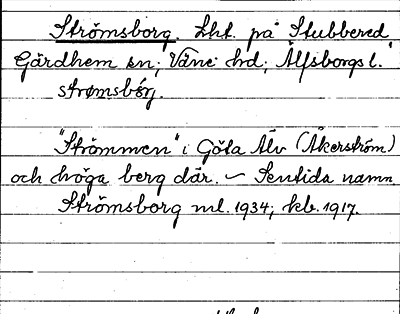 Strömsborg. Lht. på Stubbered
Gärdhem sn; Väne hd; Älfsborgs l.
strømsbórj.
"Strömmen" i Göta Älv (Åkerström)
och höga berg där. – Sentida namn.
Strömsborg ml. 1934; kb. 1917.